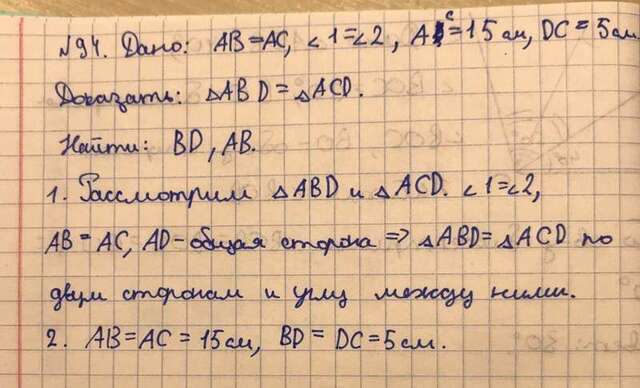 №94. Дано: AB=AC, ∠1=∠2, AC=15 см, DC=5 см
Доказать: △ABD=△ACD.
Найти: BD, AB.
1. Рассмотрим △ABD и △ACD. ∠1=∠2,
AB=AC, AD-общая сторона => △ABD=△ACD по
двум сторонам и углу между ними.
2. AB=AC=15 см, BD=DC=5 см.